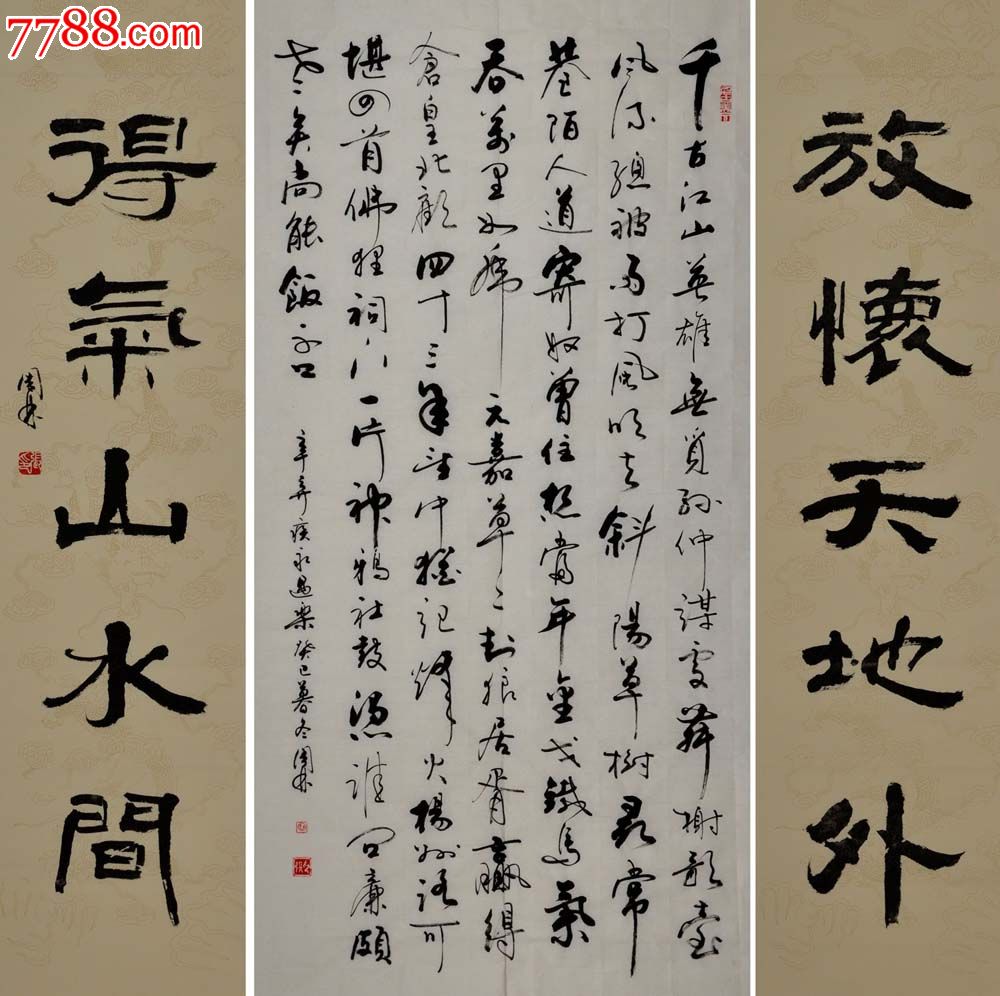 7788.com
放懷天地外
千古江山英雄無覓孫仲謀處舞榭歌臺
风流總被雨打風吹去斜陽草樹尋常
巷陌人道寄奴曾住想當年金戈鐵馬氣
吞萬里如虎 元嘉草〻封狼居胥贏得
倉皇北顧四十三年望中猶記烽火揚州路可
堪回首佛狸祠下一片神鴉社鼓憑誰問廉頗
老矣尚能飯否
辛弃疾永遇樂癸巳暮冬周林
得氣山水間
周林